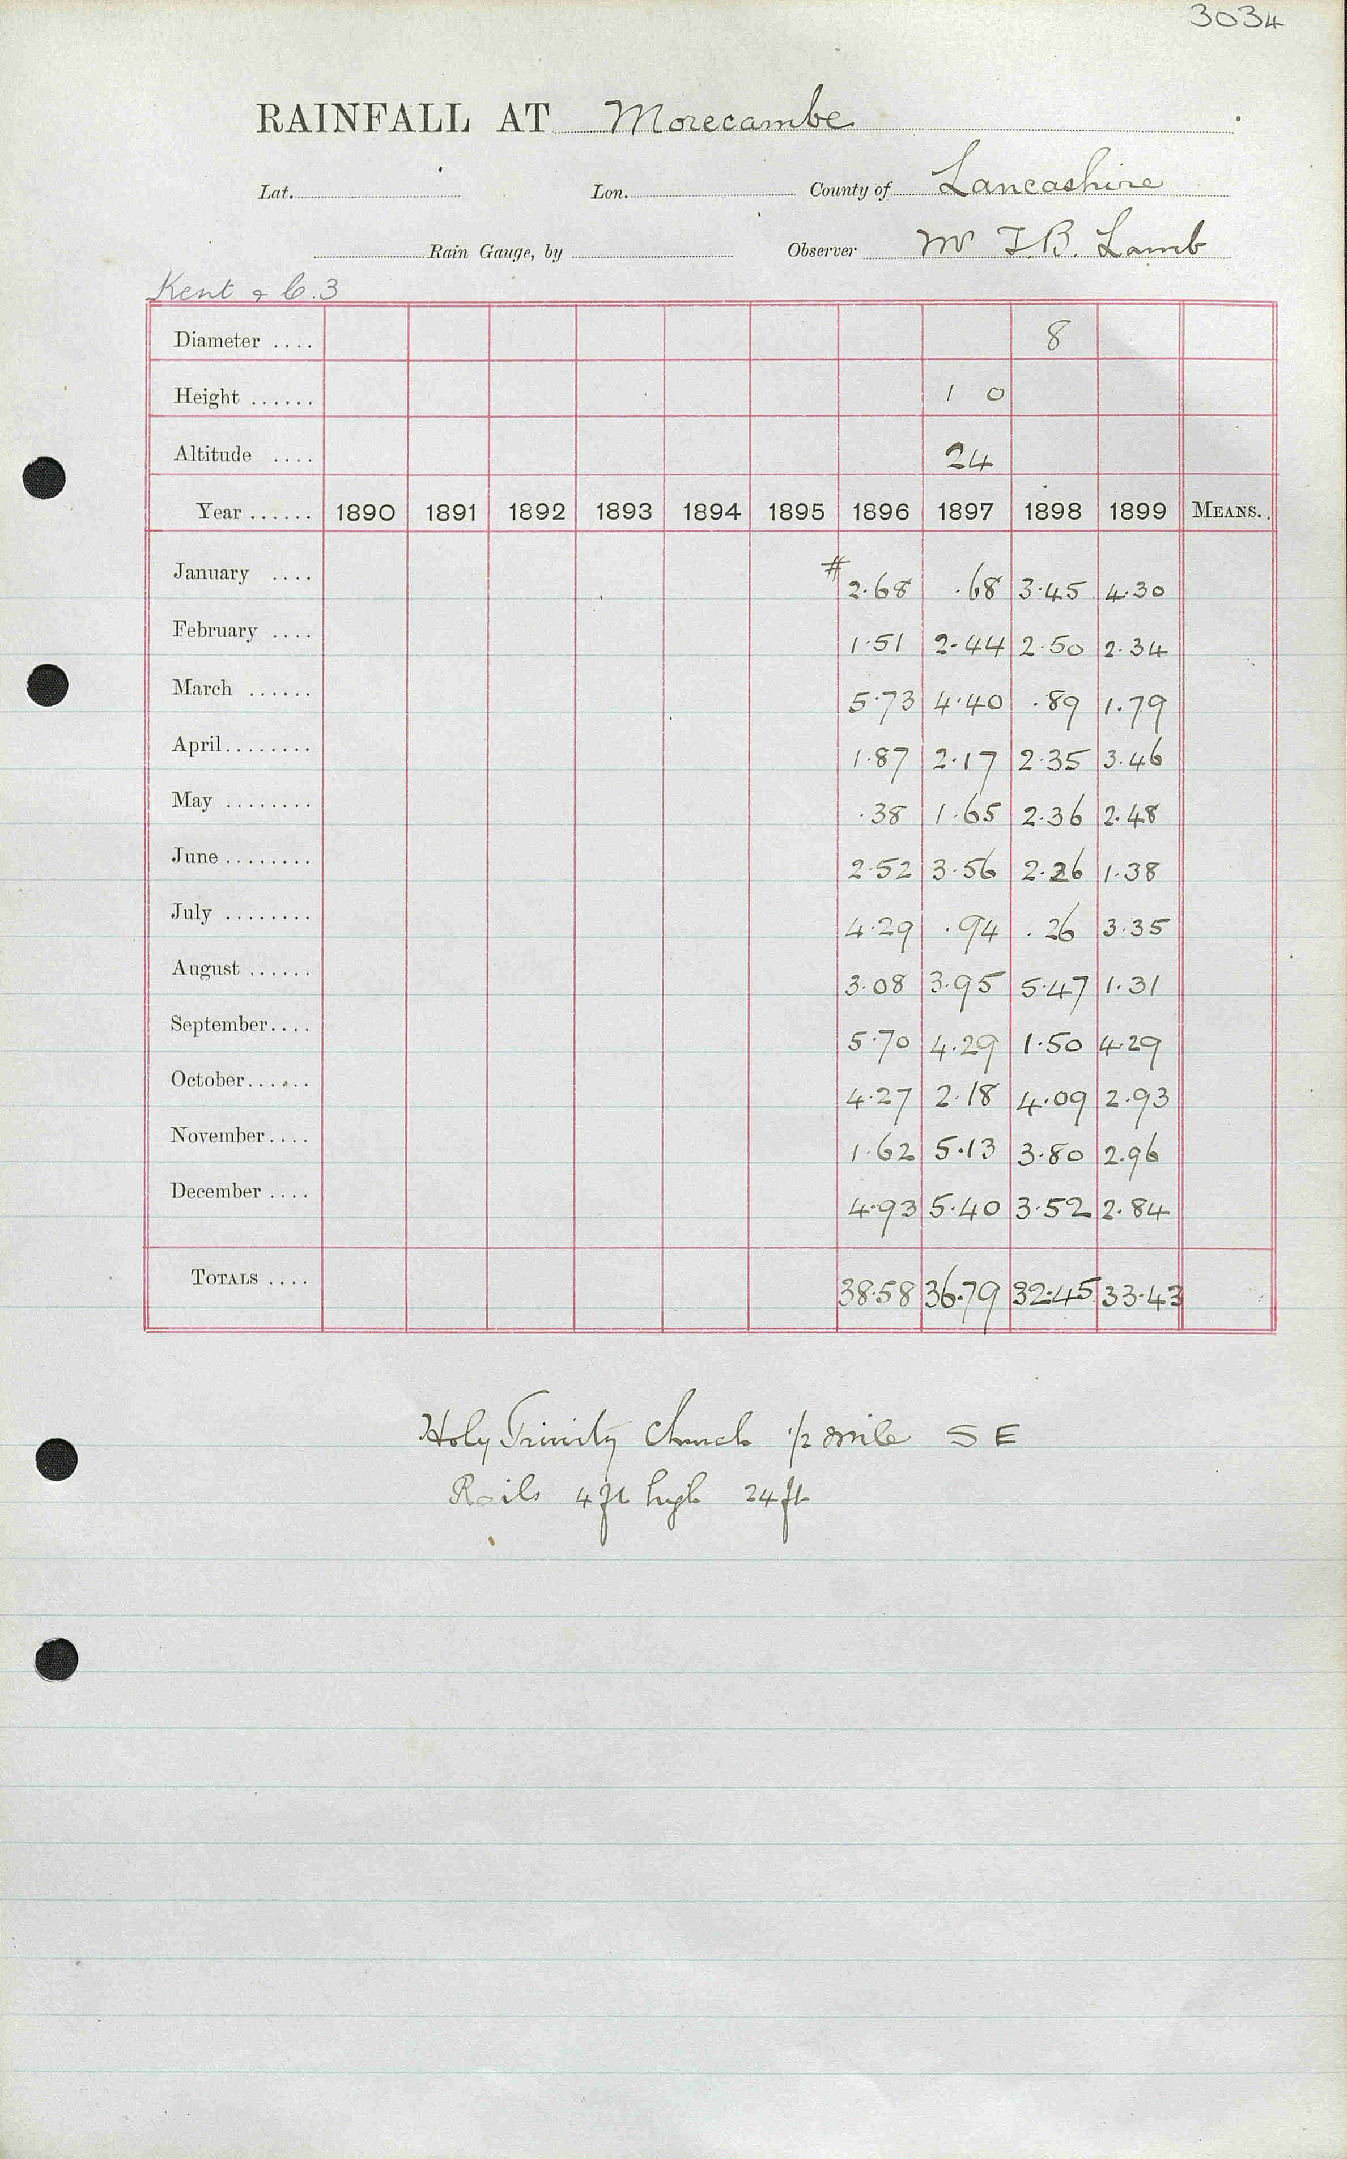 3034
RAINFALL AT Morecambe
Lat. Lon. County of Lancashire
Rain Gauge, by Observer Mr T.B. Lamb
Kent & C.3
Diameter .... 8
Height ...... 1 0
Altitude .... 24
Year ...... 1890 1891 1892 1893 1894 1895 1896 1897 1898 1899 MEANS.
January .... # 2.68 .68 3.45 4.30
February .... 1.51 2.44 2.50 2.34
March ...... 5.73 4.40 .89 1.79
April ........ 1.87 2.17 2.35 3.46
May ........ .38 1.65 2.36 2.48
June ........ 2.52 3.56 2.26 1.38
July ........ 4.29 .94 .26 3.35
August ...... 3.08 3.95 5.47 1.31
September.... 5.70 4.29 1.50 4.29
October...... 4.27 2.18 4.09 2.93
November.... 1.62 5.13 3.80 2.96
December .... 4.93 5.40 3.52 2.84
TOTALS .... 38.58 36.79 32.45 33.43
Holy Trinity Church 1/2 mile S E
Rails 4 ft high 24 ft